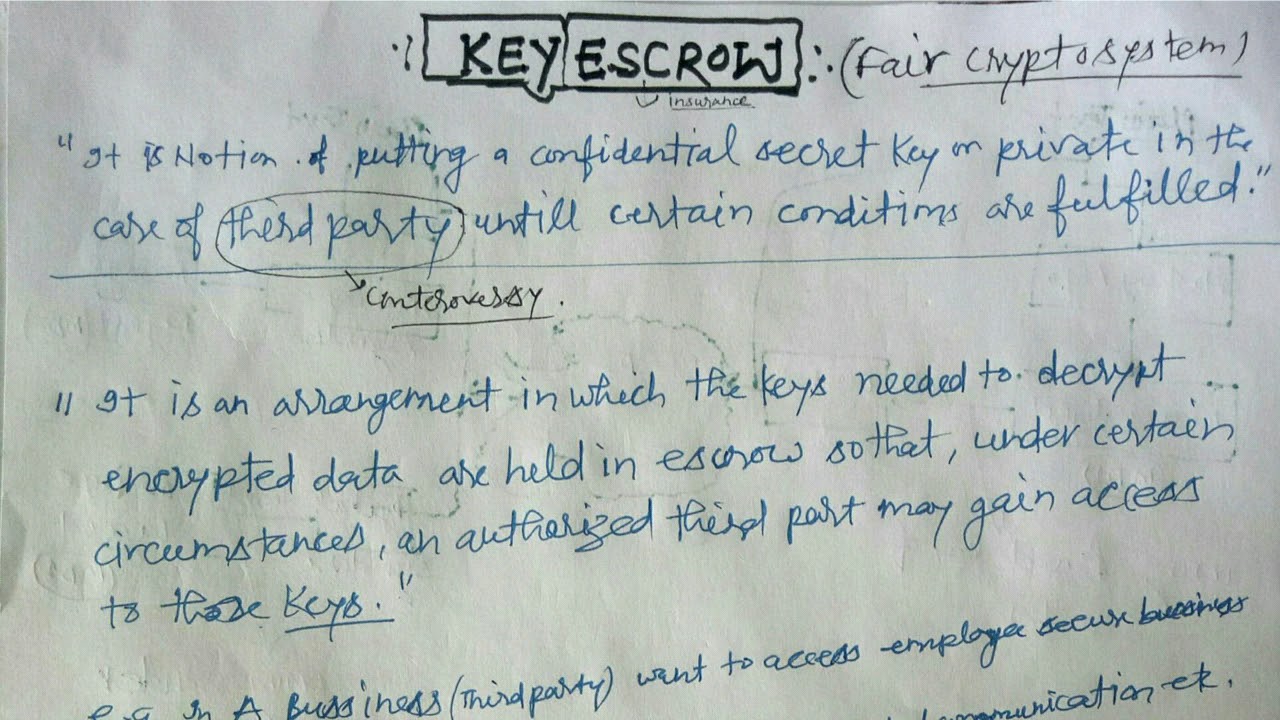 KEY ESCROW :- (Fair Cryptosystem)
insurance
"It is Notion of putting a confidential secret key or private in the
care of third party untill certain conditions are fulfilled."
Controversy.
"It is an arrangement in which the keys needed to decrypt
encrypted data are held in escrow so that, under certain
circumstances, an authorized third part may gain access
to those Keys."
e.g in A Bussiness (Third party) want to access employee secure bussiness
communication etc.